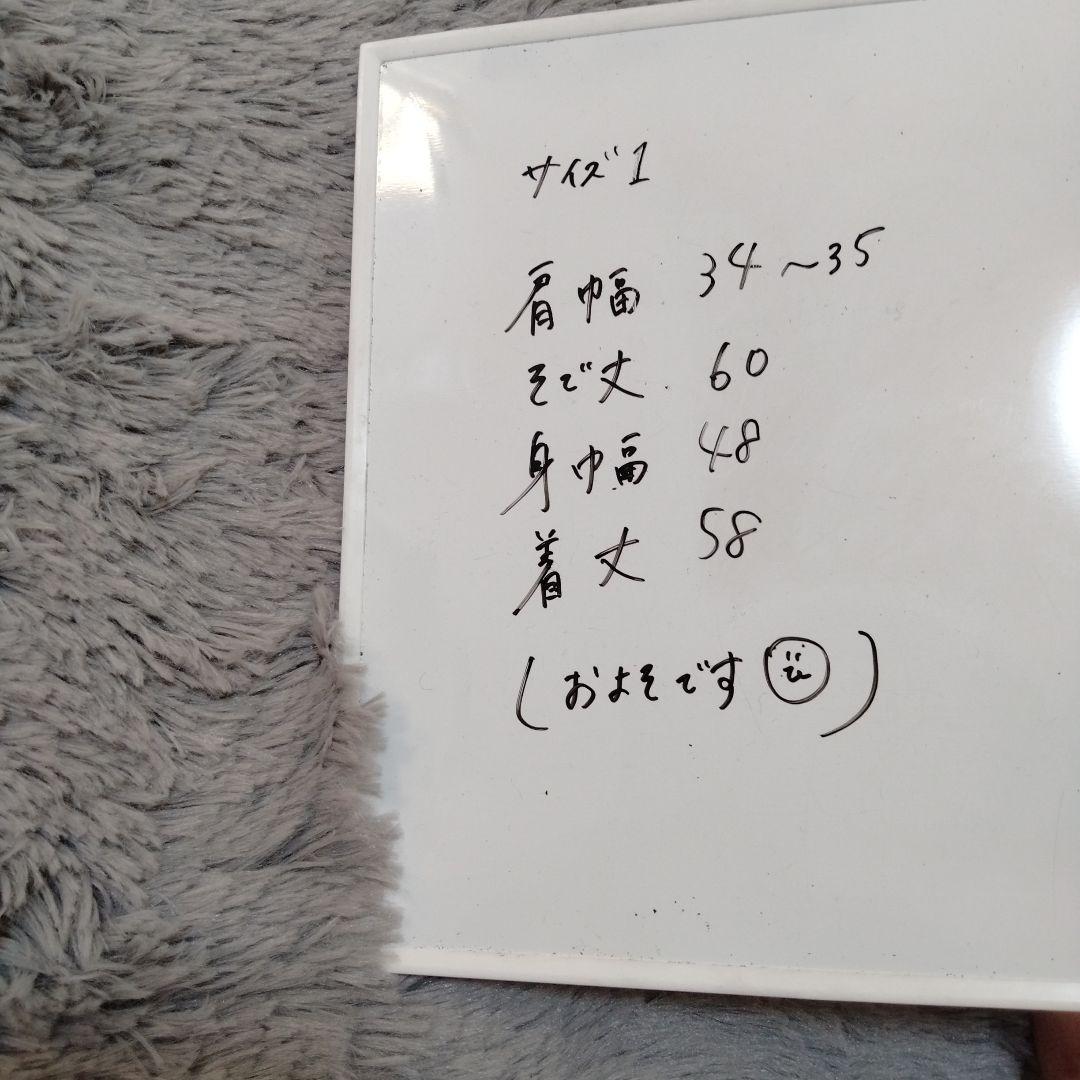 サイズ1
肩巾幅 34~35
そで丈 60
身巾幅 48
着丈 58
(およそです)